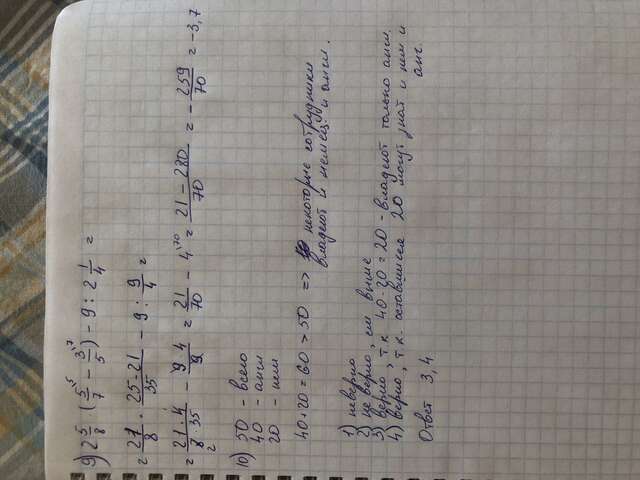 9) 2 5/8 · (5/7 ⁵ - 3/5 ⁷) - 9 : 2 1/4 =
= 21/8 · 25-21/35 - 9 : 9/4 =
= 21·4/8·35 - 9·4/9 = 21/70 - 4 ⁷⁰ = 21-280/70 = - 259/70 = -3,7
2
10) 50 - всего
40 - англ
20 - нем
40+20=60 > 50 => некоторые сотрудники
владеют и немец. и англ.
1) неверно
2) не верно, см выше
3) верно, т.к 40-20=20 - владеют только англ.
4) верно, т.к. оставшиеся 20 могут знать и нем и
анг.
Ответ 3,4